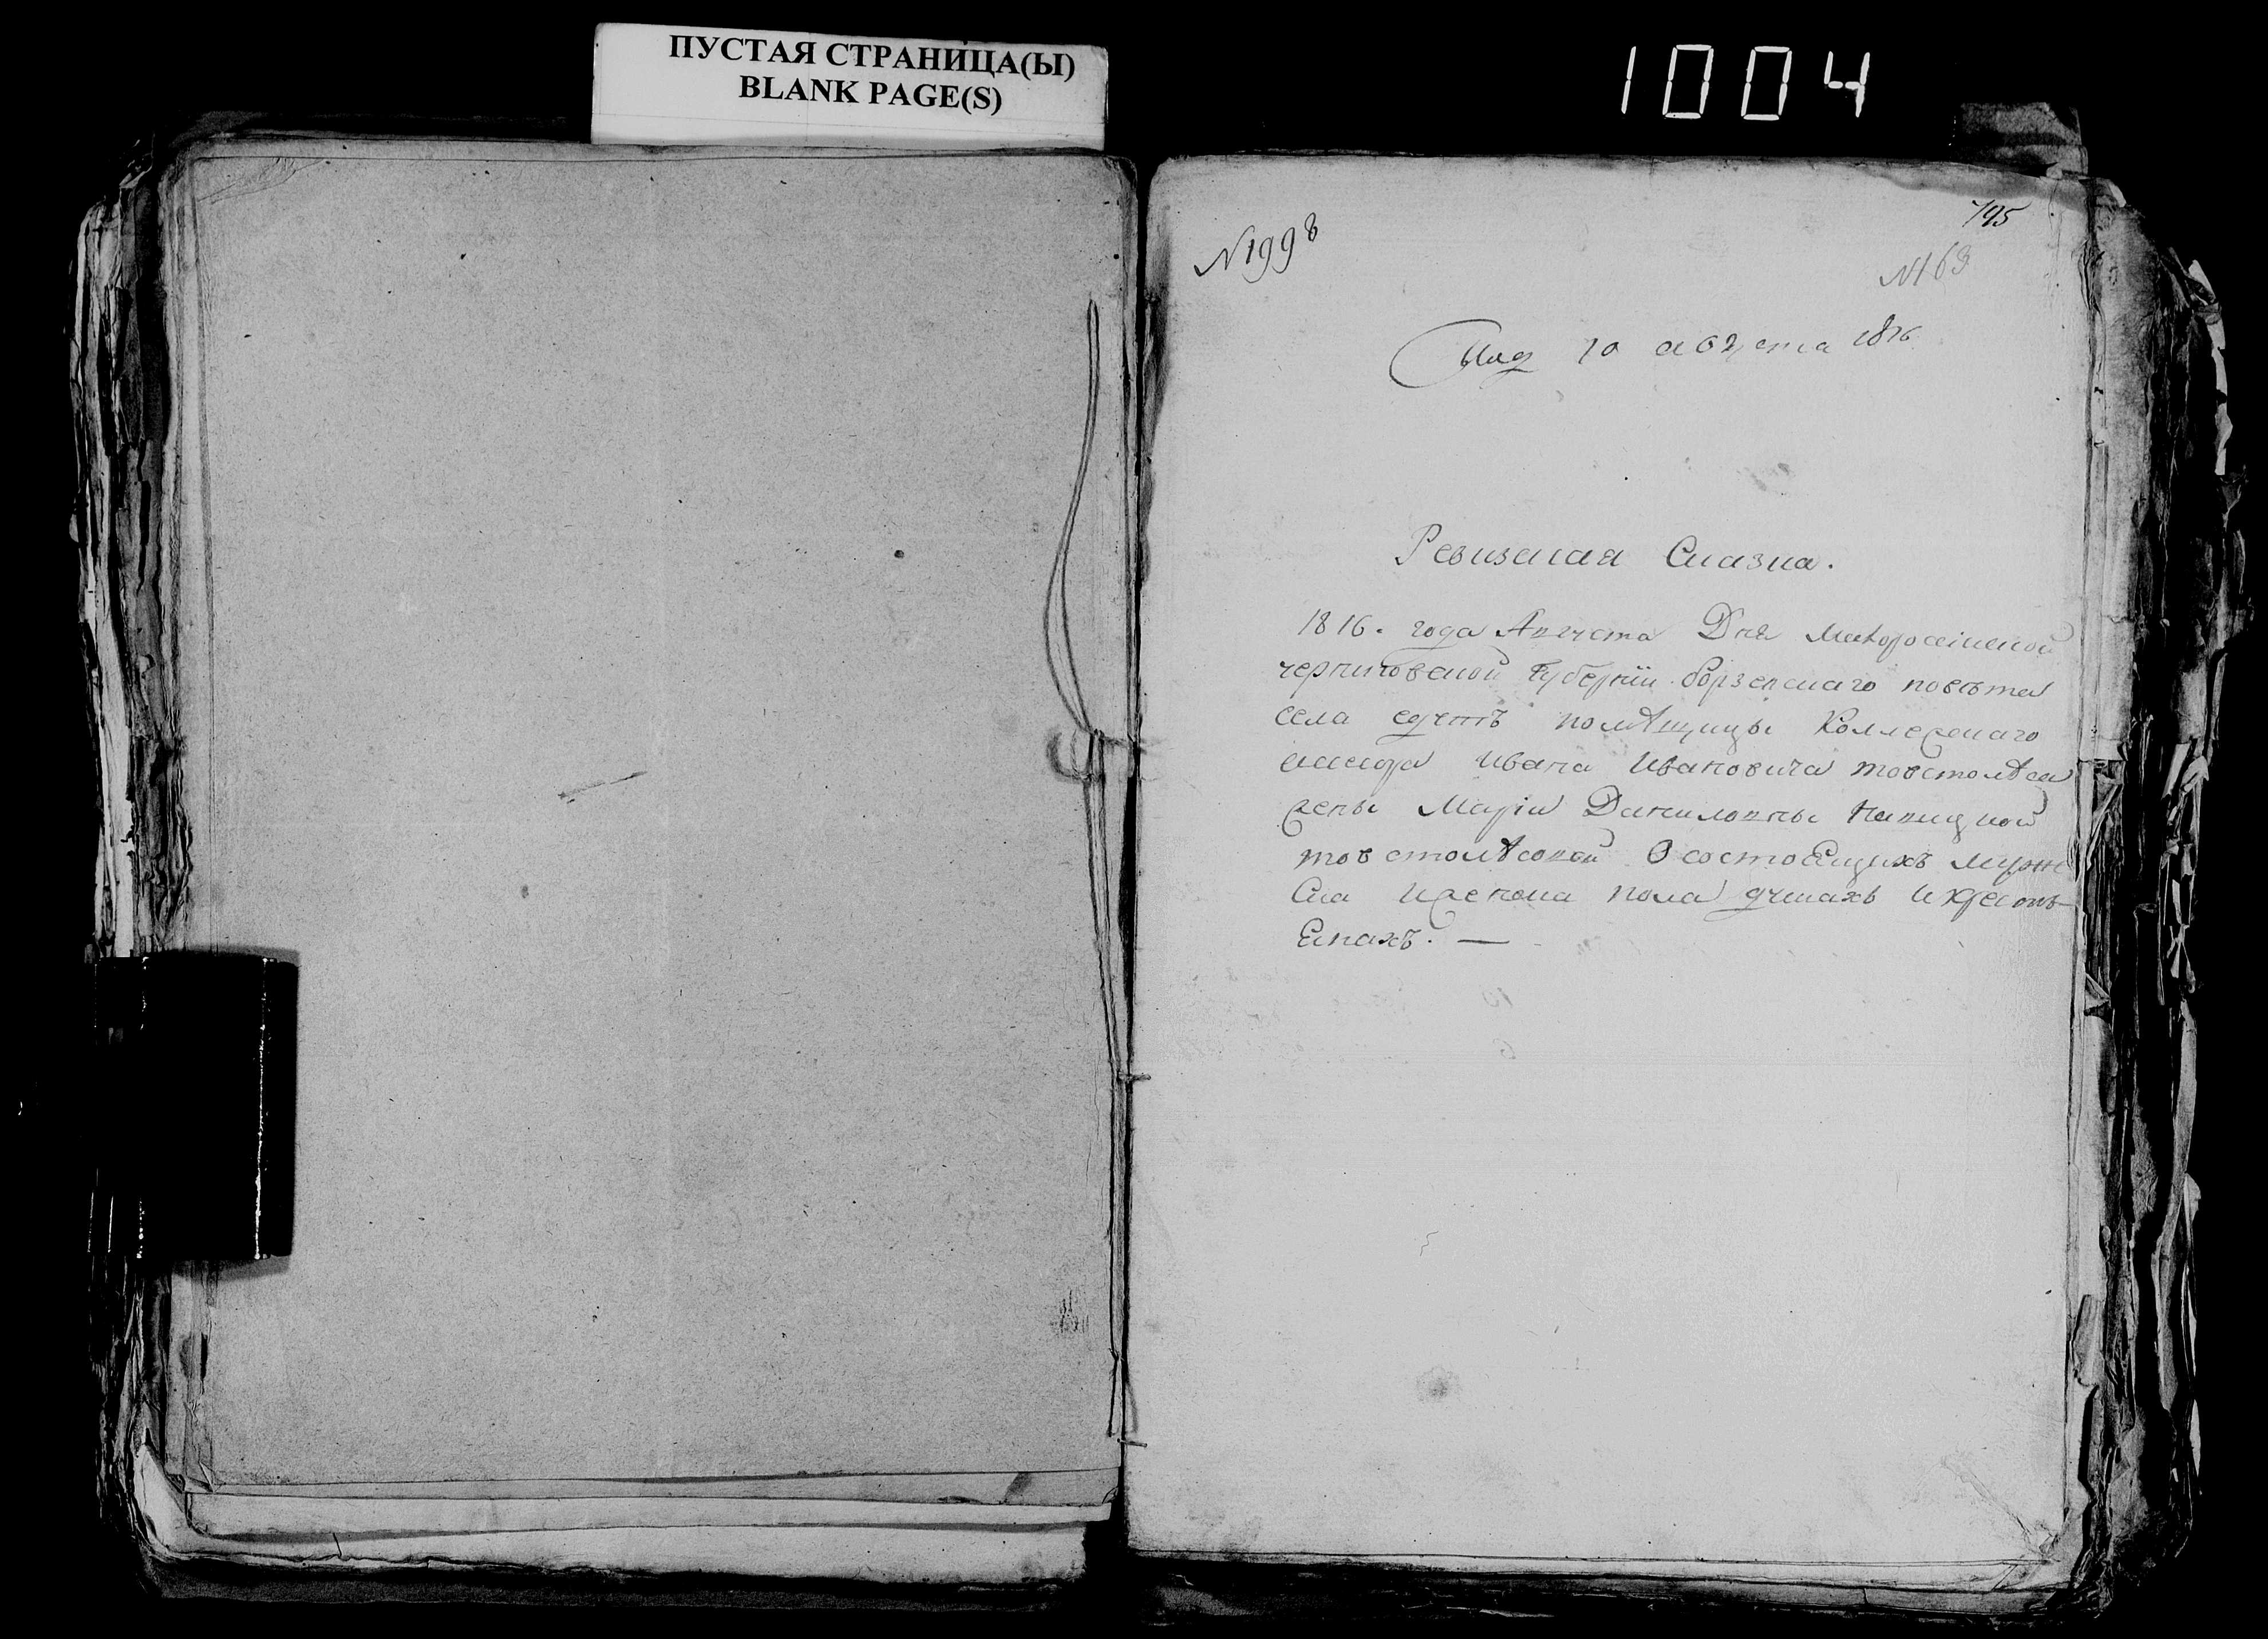 ПУСТАЯ СТРАНИЦА(Ы)
BLANK PAGE(S)
1004
795
N 1998
N 163
10 августа 1816
Ревизская Сказка.
1816. года Августа Дня Малоросiйской
черниговской Губернiи борзенскаго повѣта
села помѣщицы Коллежскаго
асесора Ивана Ивановича товстолѣса
жены Марiи Даниловны
товстолѣсовой О состоящихъ мужес
ска и женска пола душахъ и крестъ
Янахъ. —